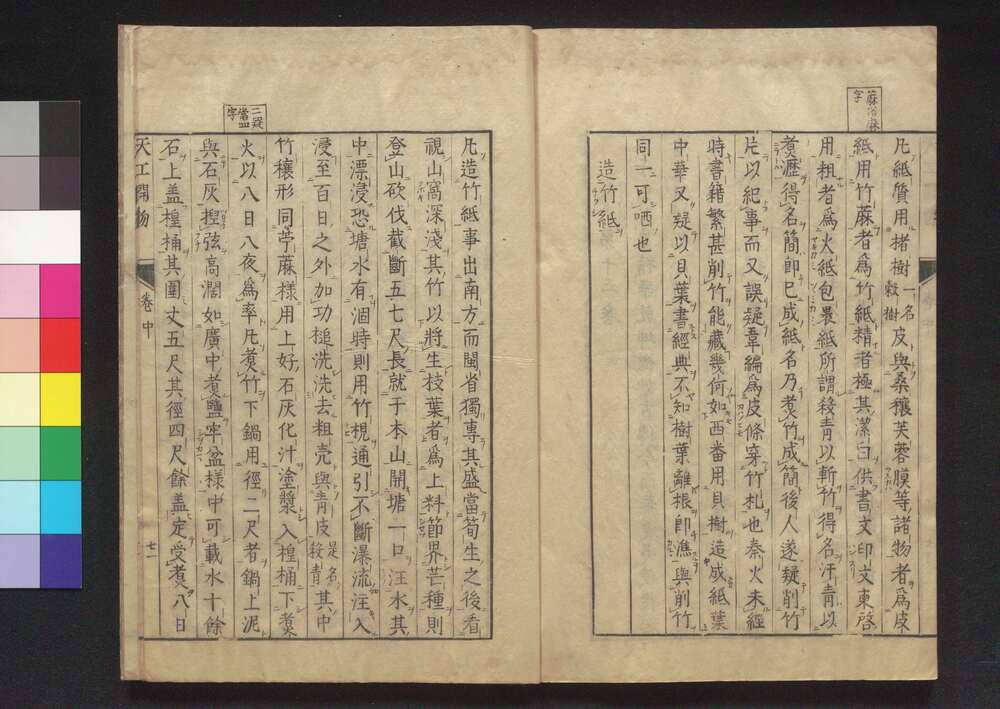 麻當麻
字
凡紙質用楮樹一名穀樹皮與桑穰芙蓉膜等諸物者爲皮
紙用竹蔴者爲竹紙精者極其潔白供書文印文柬啓
用粗者爲火紙包裹紙所謂殺青以斬竹得名汗青以
煑瀝得名簡即已成紙名乃煑竹成簡後人遂疑削竹
片以紀事而又誤疑韋編爲皮條穿竹札也秦火未經
時書籍繁甚削竹能藏幾何如西番用貝樹造成紙葉
中華又疑以貝葉書經典不知樹葉離根即燋與削竹
同一可哂也
造竹紙
凡造竹紙事出南方而閩省獨專其盛當筍生之後看
視山窩深淺其竹以將生枝葉者爲上料節界芒種則
登山砍伐截斷五七尺長就于本山開塘一口注水其
中漂浸恐塘水有涸時則用竹梘通引不斷瀑流注入
浸至百日之外加功槌洗洗去粗壳與青皮是名殺青其中
竹穰形同苧蔴樣用上好石灰化汁塗漿入楻桶下煑
火以八日八夜爲率凡煑竹下鍋用徑二尺者鍋上泥
與石灰揑弦高濶如廣中煑鹽牢盆樣中可載水十餘
石上盖楻桶其圍丈五尺其徑四尺餘盖定受煑八日
天工開物
卷中
七一